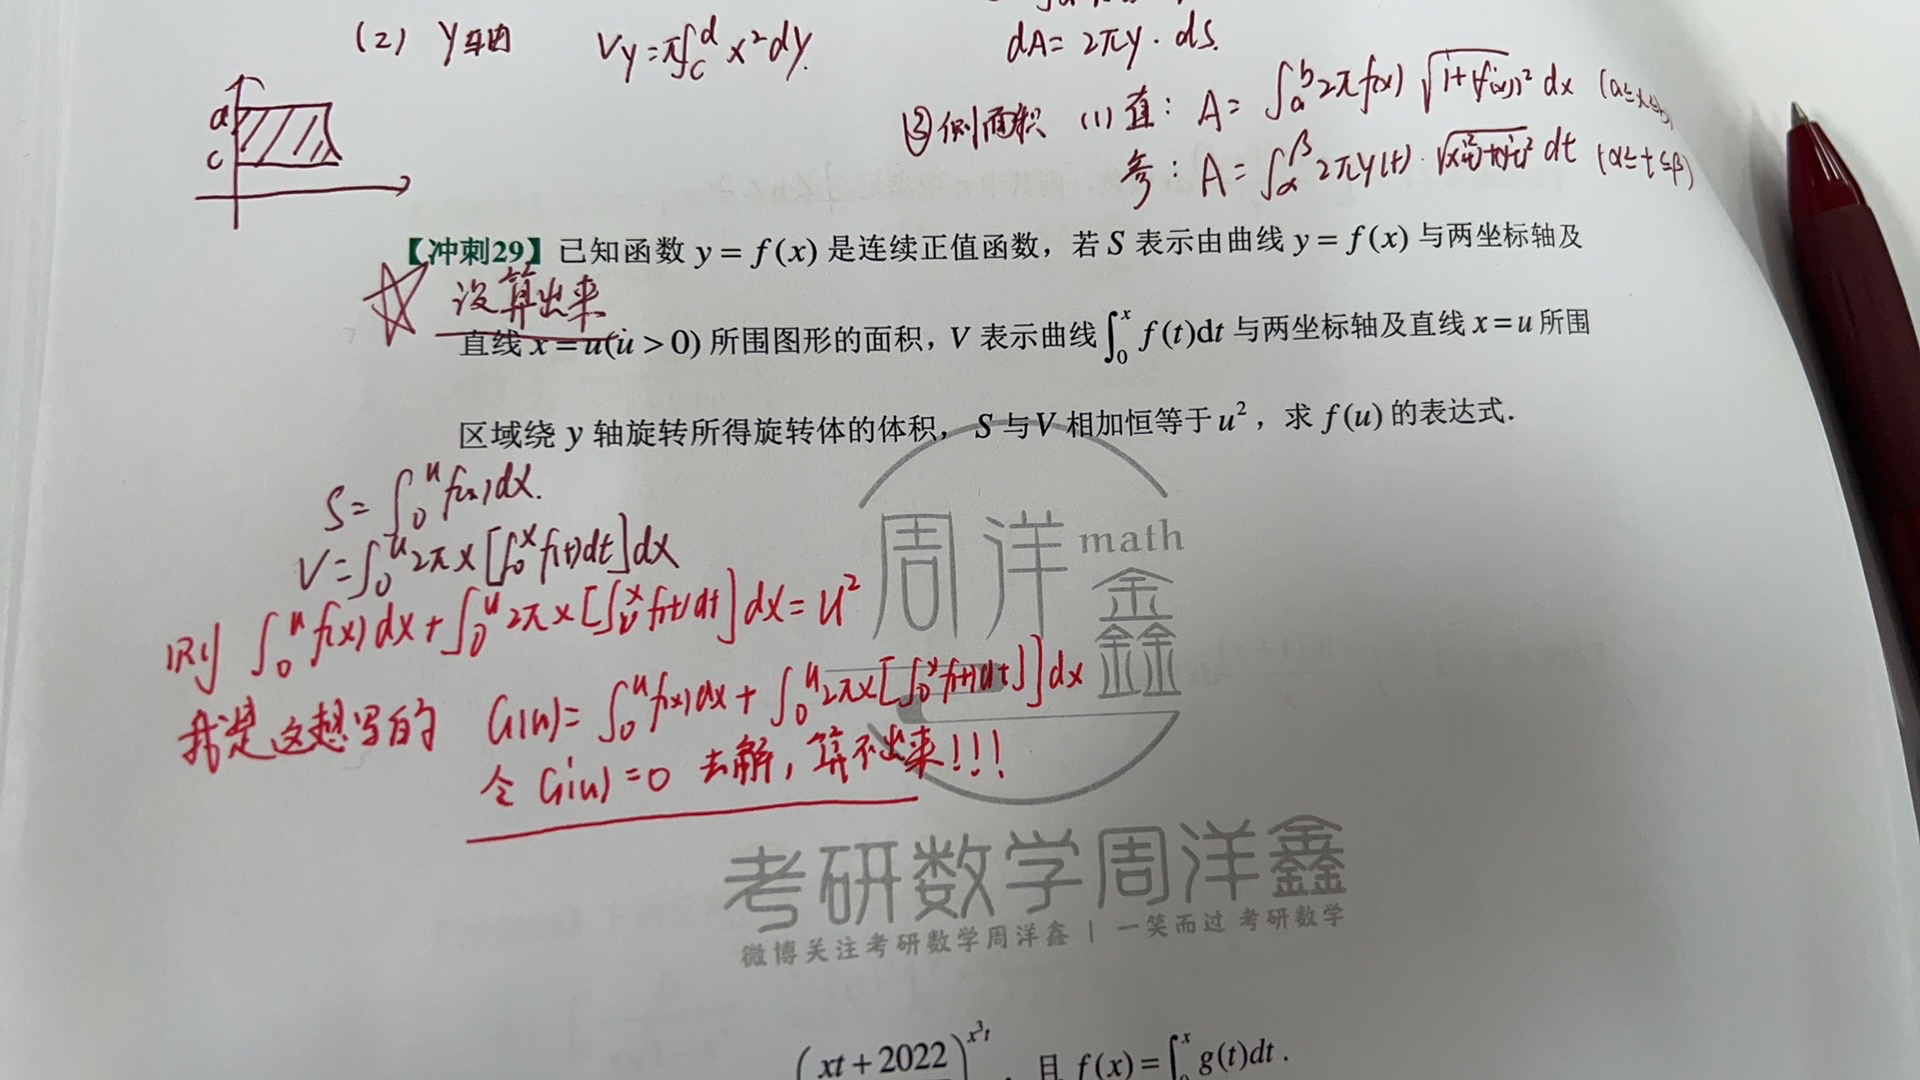 (2) y轴 Vy=π∫_c^d x²dy.
dA= 2πy·dS.
d
c
③侧面积 (1)直: A= ∫_a^b 2πf(x) √(1+(f'(x))²) dx (a≤x≤b)
参: A= ∫_α^β 2πy(t)·√(x'(t)²+y'(t)²) dt (α≤t≤β)
【冲刺29】已知函数 y = f(x) 是连续正值函数，若 S 表示由曲线 y = f(x) 与两坐标轴及
没算出来
直线 x = u(u > 0) 所围图形的面积，V 表示曲线 ∫_0^x f(t)dt 与两坐标轴及直线 x = u 所围
区域绕 y 轴旋转所得旋转体的体积， S 与 V 相加恒等于 u²，求 f(u) 的表达式．
S= ∫_0^u f(x)dx.
V=∫_0^u 2πx[∫_0^x f(t)dt]dx
则 ∫_0^u f(x)dx+∫_0^u 2πx[∫_0^x f(t)dt]dx=u²
我是这想写的 G(u)= ∫_0^u f(x)dx+ ∫_0^u 2πx[∫_0^x f(t)dt]dx
令 G'(u)=0 去解，算不出来!!!
周洋鑫 math
考研数学周洋鑫
微博关注考研数学周洋鑫 | 一笑而过 考研数学
(xt + 2022)^{x³t} ，且 f(x) = ∫_0^x g(t)dt．